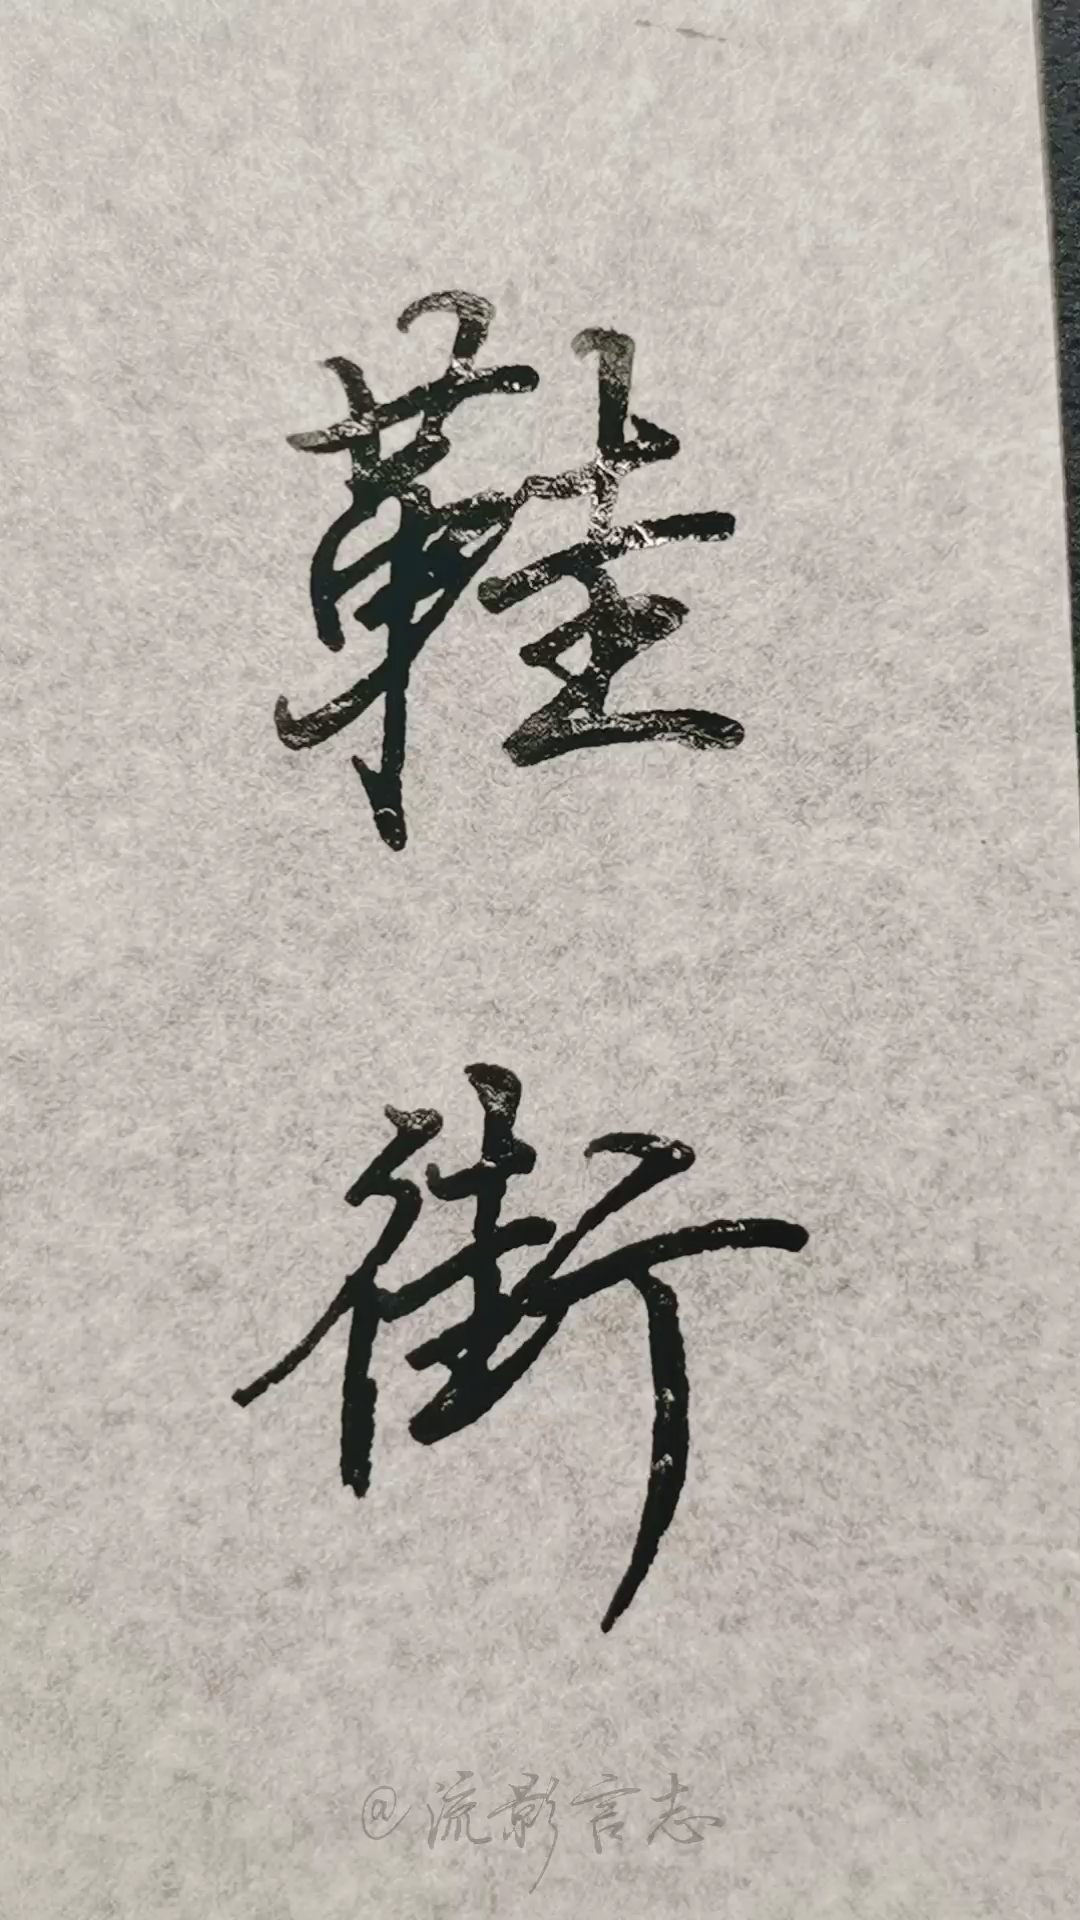 鞋
街
@流影言志